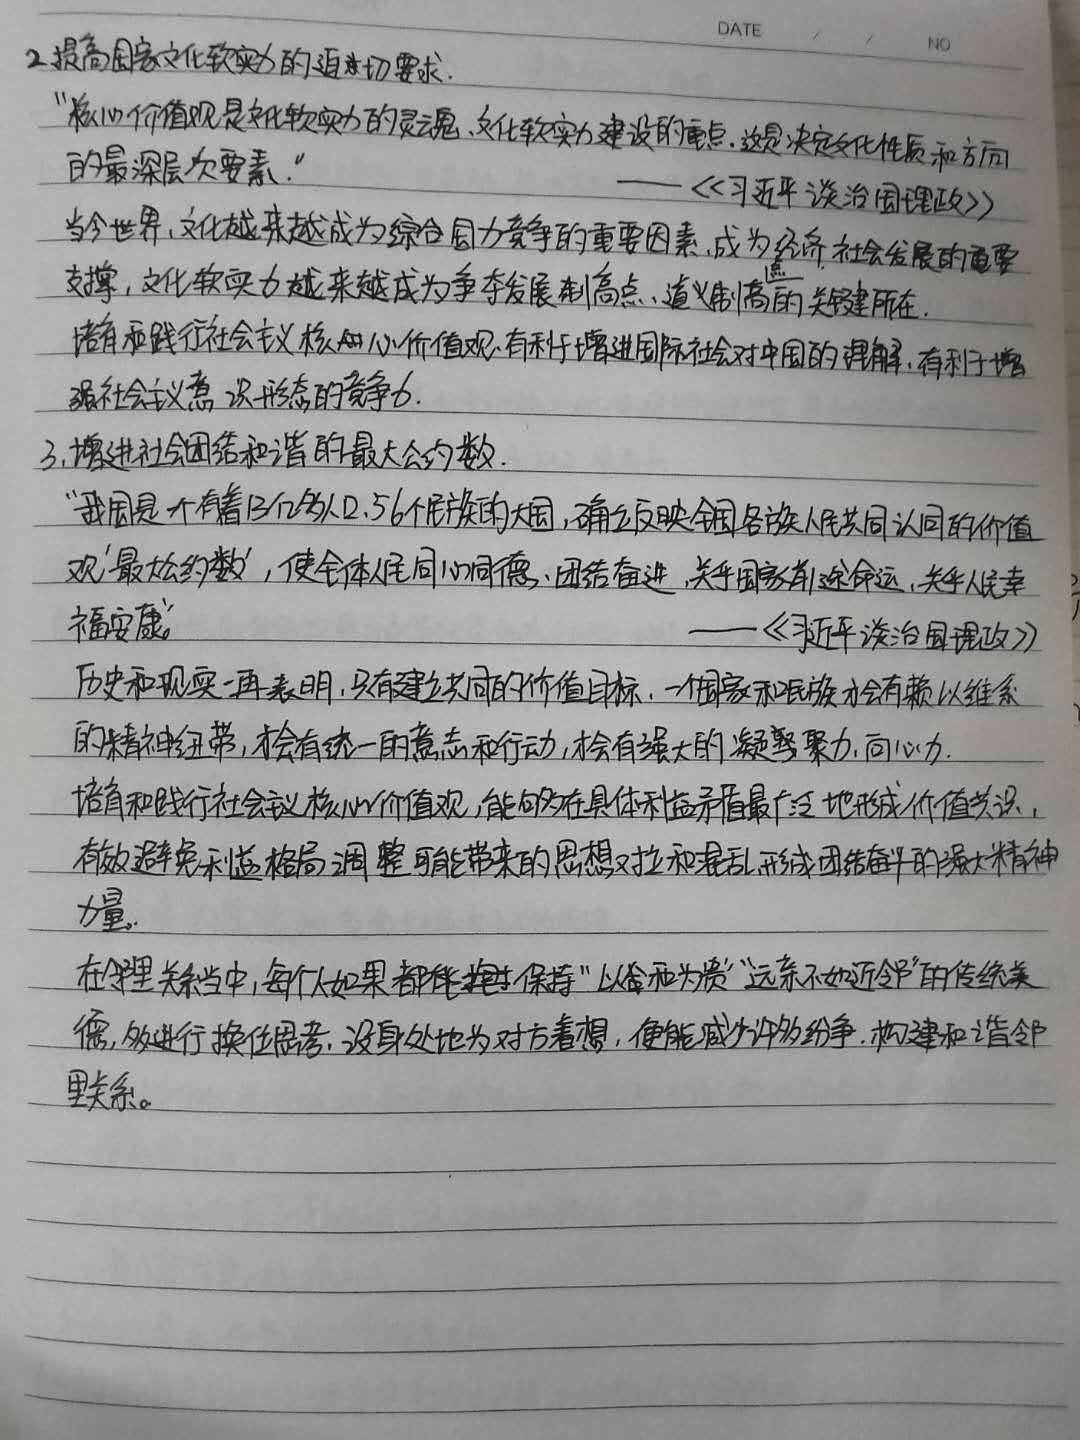 DATE / / NO
2.提高国家文化软实力的迫切要求.
"核心价值观是文化软实力的灵魂、文化软实力建设的重点.这是决定文化性质和方向
的最深层次要素."
——《习近平谈治国理政》
当今世界,文化越来越成为综合国力竞争的重要因素、成为经济社会发展的重要
支撑,文化软实力越来越成为争夺发展制高点、道义制高点的关键所在.
培育和践行社会主义核心价值观.有利于增进国际社会对中国的理解.有利于增
强社会主义意识形态的竞争力.
3.增进社会团结和谐的最大公约数.
"我国是一个有着13亿多人口、56个民族的大国,确立反映全国各族人民共同认同的价值
观'最大公约数',使全体人民同心同德、团结奋进,关乎国家前途命运,关乎人民幸
福安康。"
——《习近平谈治国理政》
历史和现实一再表明,只有建立共同的价值目标,一个国家和民族才会有赖以维系
的精神纽带,才会有统一的意志和行动,才会有强大的凝聚力、向心力.
培育和践行社会主义核心价值观,能够在具体利益矛盾最广泛地形成价值共识,
有效避免利益格局调整可能带来的思想对立和混乱,形成团结奋斗的强大精神
力量.
在邻里关系当中,每个人如果都能保持"以和为贵""远亲不如近邻"的传统美
德,多进行换位思考,设身处地为对方着想,便能减少许多纷争.构建和谐邻
里关系。